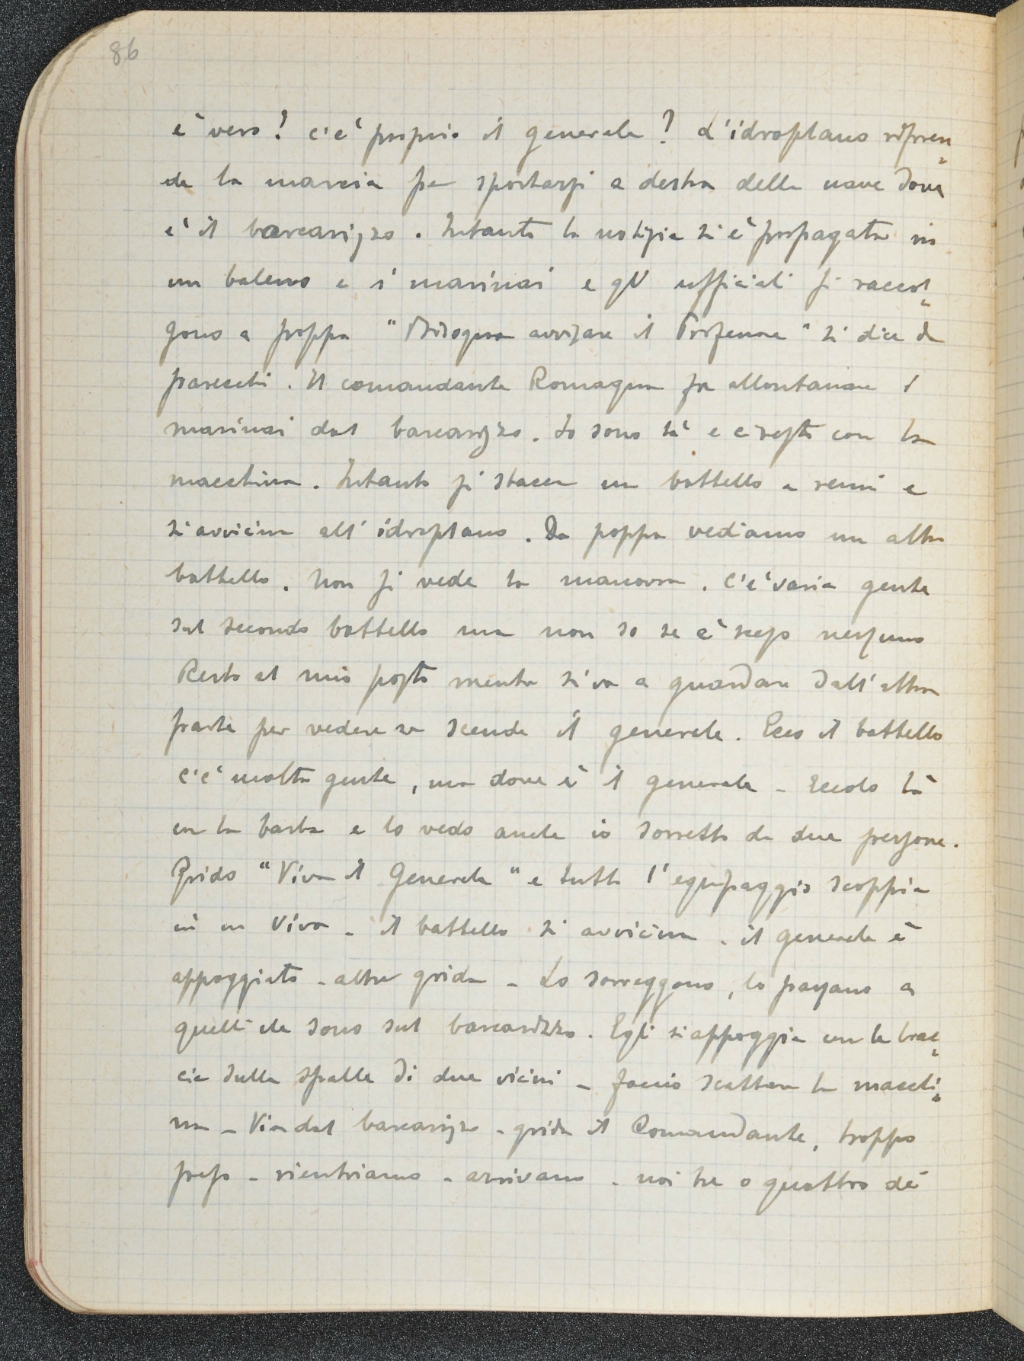 86
è vero? c'è proprio il generale? L'idroplano ripren=
de la marcia per spostarsi a destra della nave dove
è il barcarizzo. Intanto la notizia si è propagata in
un baleno e i marinai e gli ufficiali si raccol=
gono a poppa "Bisogna avvisare il Professore" si dice da
parecchi. Il comandante Romagna fa allontanare i
marinai dal barcarizzo. Io sono là e ci resto con la
macchina. Intanto si stacca un battello a remi e
si avvicina all'idroplano. Da poppa vediamo un altro
battello. Non si vede la manovra. C'è varia gente
sul secondo battello ma non so se è sceso nessuno
Resto al mio posto mentre si va a guardare dall'altra
parte per vedere se scende il generale. Ecco il battello
c'è molta gente, ma dove è il generale - Eccolo là
con la barba e lo vedo anche io sorretto da due persone.
Grido "Viva il Generale" e tutto l'equipaggio scoppia
in un Viva - il battello si avvicina - il generale è
appoggiato - altre grida - Lo sorreggono, lo passano a
quelli che sono sul barcarizzo. Egli si appoggia con le brac=
cia sulle spalle di due vicini - faccio scattare la macchi=
na - Via dal barcarizzo - grida il Comandante, troppo
peso - rientriamo - arrivano - noi tre o quattro che